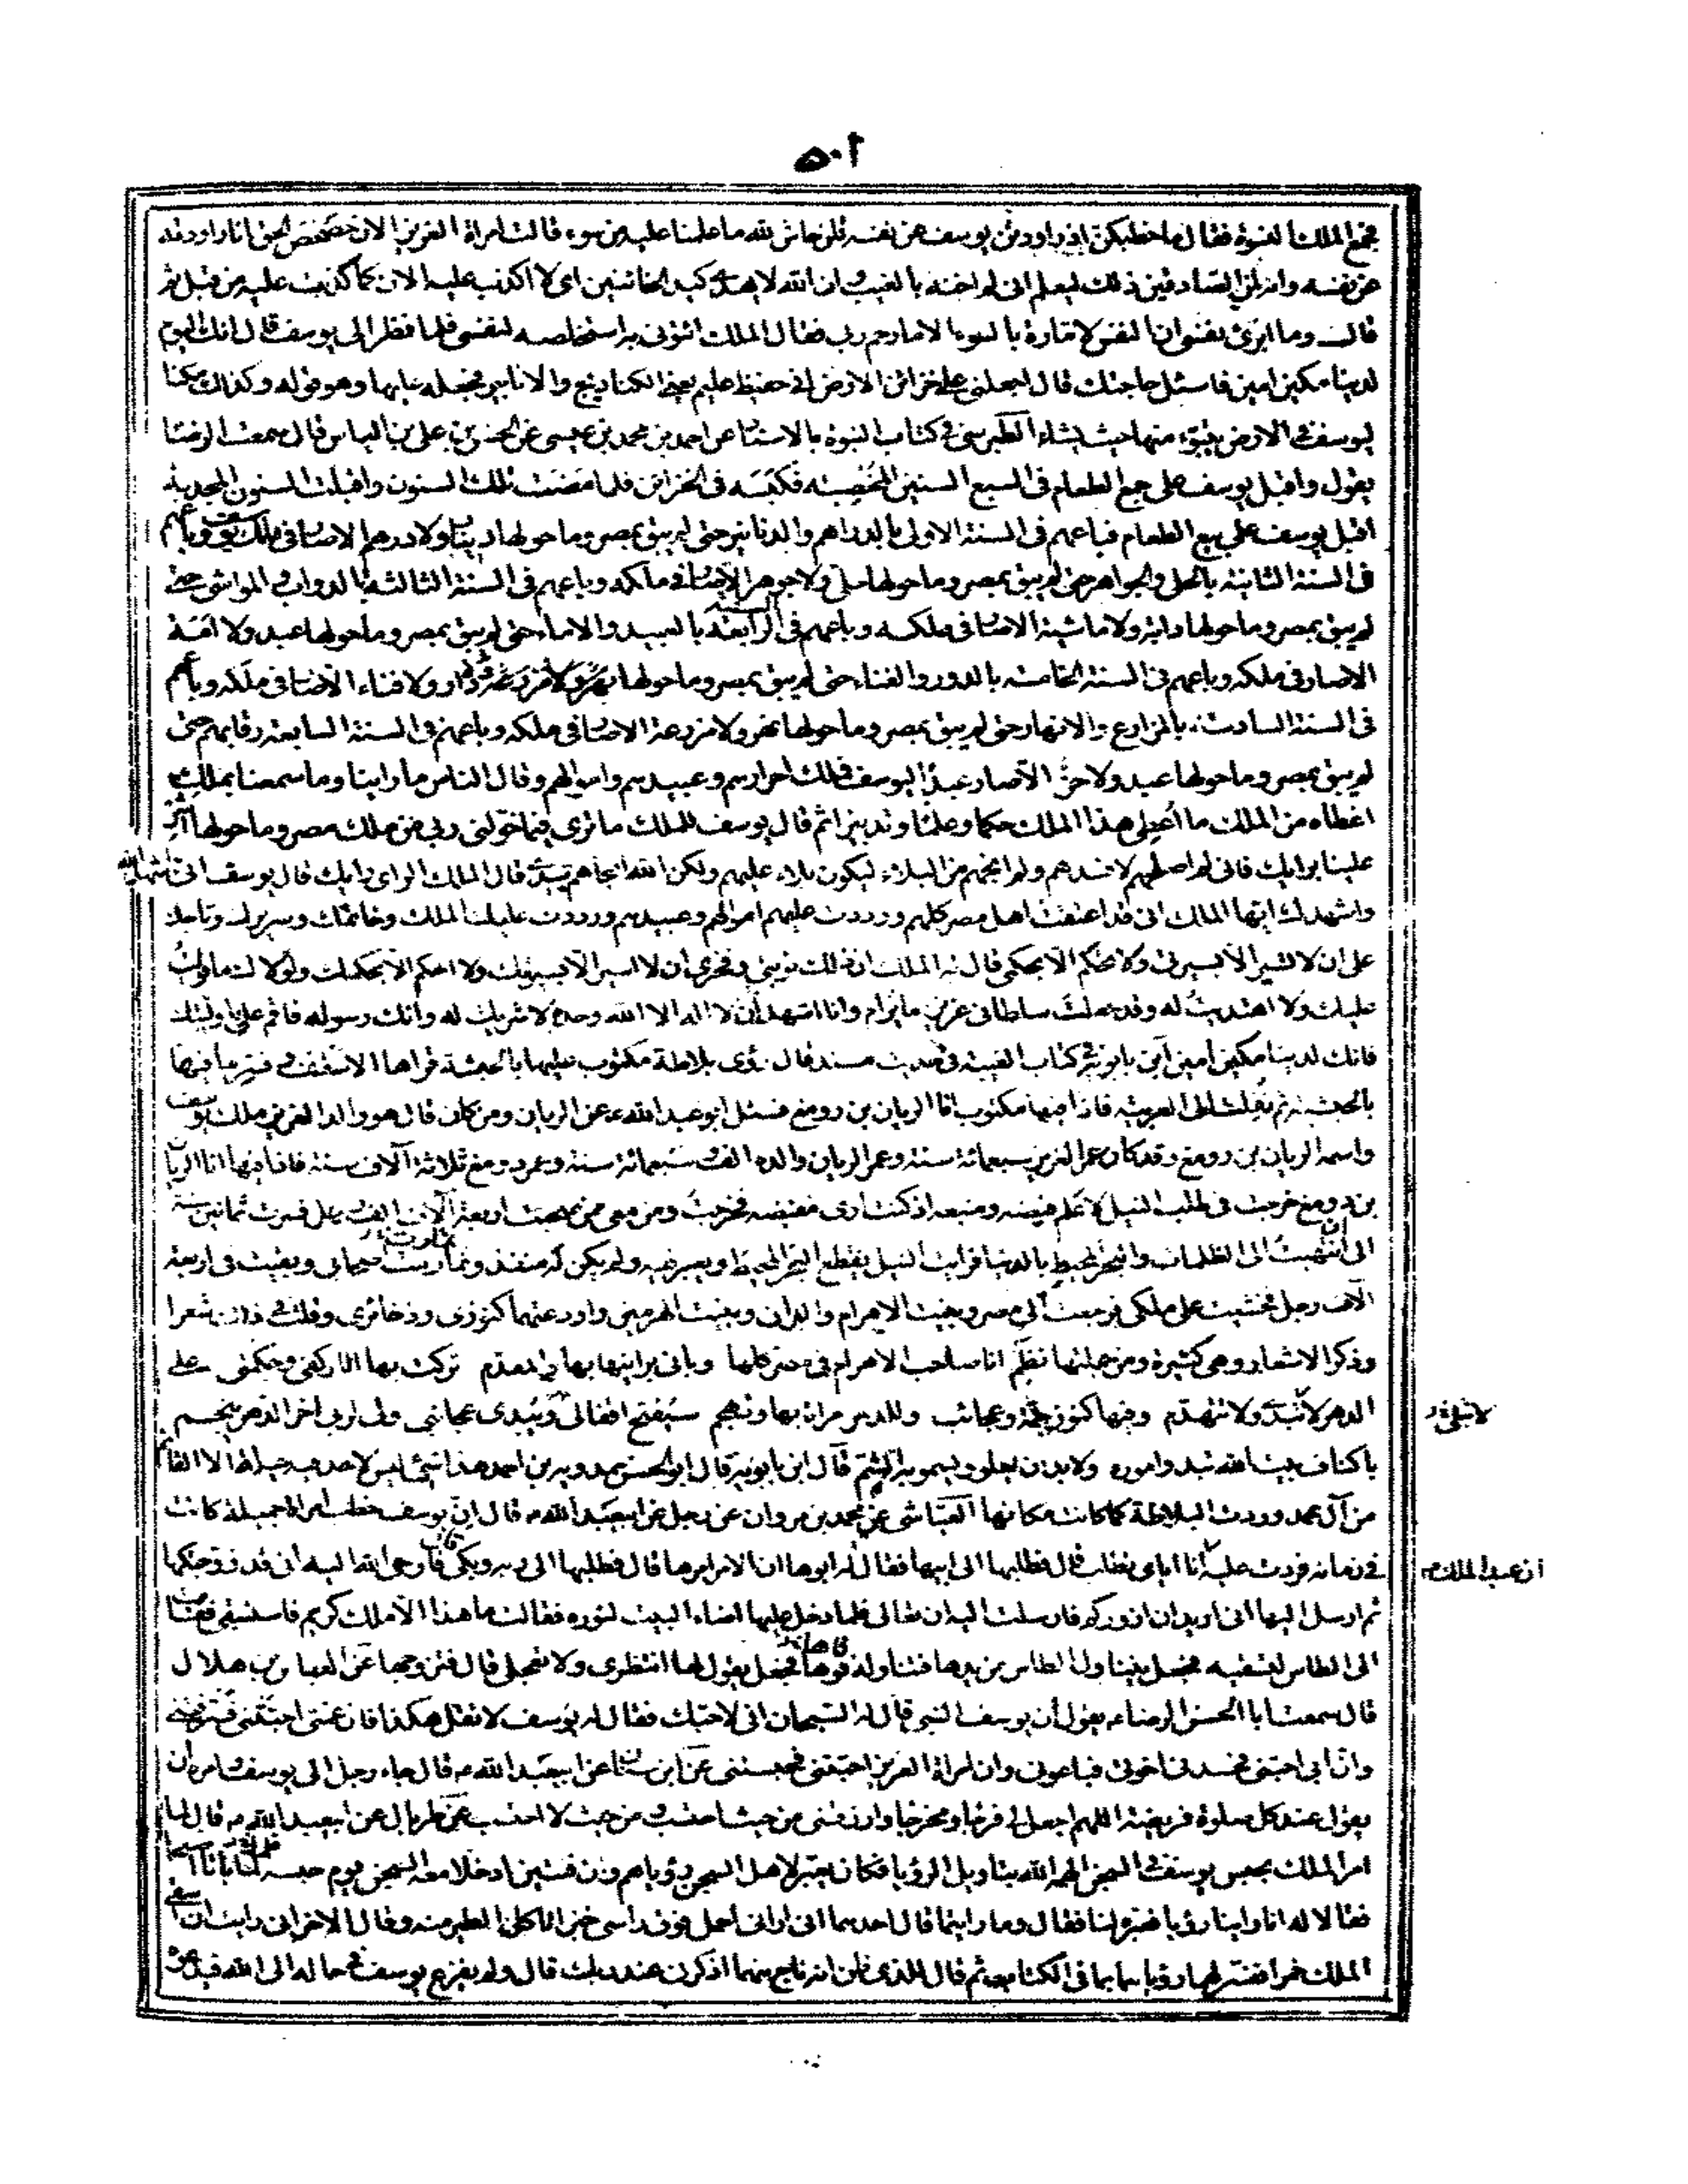 ٥٠١
فجمع الملك النسوة فقال ما خطبكن اذ راودتن يوسف عن نفسه قلن حاش لله ما علمنا عليه من سوء قالت امراة العزيز الان حصحص الحق انا راودته
عن نفسه وانه لمن الصادقين ذلك ليعلم انى لم اخنه بالغيب وان الله لا يهدى كيد الخائنين اى لا اكذب عليه الان كما كذبت عليه من قبل ثم
قالت وما ابرئ نفسى ان النفس لامارة بالسوء الا ما رحم ربى فقال الملك ائتونى به استخلصه لنفسى فلما نظر الى يوسف قال انك اليوم
لدينا مكين امين فاسئل حاجتك قال اجعلنى على خزائن الارض انى حفيظ عليم يعنى الكناديج والانابير فجعله عليها وهو قوله وكذلك مكنا
ليوسف فى الارض يتبوء منها حيث يشاء الطبرسى فى كتاب النبوة بالاسناد عن احمد بن محمد بن عيسى عن الحسن بن على بن الياس قال سمعت الرضا
يقول واقبل يوسف على جمع الطعام فى السبع السنين المخصبة فكبسه فى الخزائن فلما مضت تلك السنون واقبلت السنون المجدبة
اقبل يوسف على بيع الطعام فباعهم فى السنة الاولى بالدراهم والدنانير حتى لم يبق بمصر وما حولها دينار ولا درهم الا صار فى ملك يوسف وباعهم
فى السنة الثانية بالحلى والجواهر حتى لم يبق بمصر وما حولها حلى ولا جوهر الا صار فى ملكه وباعهم فى السنة الثالثة بالدواب والمواشى حتى
لم يبق بمصر وما حولها دابة ولا ماشية الا صار فى ملكه وباعهم فى السنة الرابعة بالعبيد والاماء حتى لم يبق بمصر وما حولها عبد ولا امة
الا صار فى ملكه وباعهم فى السنة الخامسة بالدور والفناء حتى لم يبق بمصر وما حولها دار ولا فناء الا صار فى ملكه وباعهم
فى السنة السادسة بالمزارع والانهار حتى لم يبق بمصر وما حولها نهر ولا مزرعة الا صار فى ملكه وباعهم فى السنة السابعة رقابهم حتى
لم يبق بمصر وما حولها عبد ولا حر الا صار عبدا ليوسف فملك احرارهم وعبيدهم واموالهم وقال الناس ما راينا وما سمعنا بملك
اعطاه من الملك ما اعطى هذا الملك حكما وعلما وتدبيرا ثم قال يوسف للملك ما ترى فيما خولنى ربى من ملك مصر وما حولها اشر
علينا برايك فانى لم اصلحهم لافسدهم ولم انجهم من البلاء ليكون بلاء عليهم ولكن الله انجاهم بيدى قال الملك الراى رايك قال يوسف انى اشهد الله
واشهدك ايها الملك انى قد اعتقت اهل مصر كلهم ورددت عليهم اموالهم وعبيدهم ورددت عليك الملك وخاتمك وسريرك وتاجك
على ان لا تسير الا بسيرتى ولا تحكم الا بحكمى قال له الملك ان ذلك توبتى وفخرى ان لا اسير الا بسيرتك ولا احكم الا بحكمك ولولاك ما قويت
عليك ولا اهتديت له وقد جعلت سلطانى عزيزا ما يرام وانا اشهد ان لا اله الا الله وحده لا شريك له وانك رسوله فاقم على ما وليتك
فانك لدينا مكين امين ابن بابويه فى كتاب الغيبة فى حديث مسند قال بلاطة مكتوب عليها بالحبشية قراها الاسقف فسر ما فيها
بالحبشية ثم نقلت الى العربية فاذا فيها مكتوب انا الريان بن دومغ فسئل ابو عبد الله عن الريان ومن كان قال هو والد العزيز ملك يوسف
واسمه الريان بن دومغ وقد كان عمر العزيز سبعمائة سنة وعمر الريان والده الف وسبعمائة سنة وعمر دومغ ثلاثة آلاف سنة فاذا فيها انا الريان
بن دومغ خرجت فى طلب النيل لاعلم فيضه ومنبعه اذ كنت ارى مفيضه فخرجت ومن معى ممن صحبت اربعة آلاف الف رجل فسرت ثمانين سنة
الى ان انتهيت الى الظلمات والبحر المحيط بالدنيا فرايت النيل يقطع البحر المحيط ويعبر فيه ولم يكن له منفذ وتماوتت اصحابى وبقيت فى اربعة
آلاف رجل فخشيت على ملكى فرجعت الى مصر وبنيت الاهرام والبرانى وبنيت الهرمين واودعتهما كنوزى وذخائرى وقلت فى ذلك شعرا
وذكر الاشعار وهى كثيرة ومن جملتها نظم انا صاحب الاهرام فى مصر كلها وبانى برانيها بها والمقدم تركت بها اثار كفى وحكمتى على
الدهر لا تبلى ولا تتهدم وفيها كنوز جمة وعجائب وللدهر مرات بها وتهجم ستفتح اقفالى وتبدى عجائبى ولى لربى اخر الدهر ينجم
باكناف بيت الله تبدو اموره ولا بد ان يعلو ويسمو به السم قال ابن بابويه قال ابو الحسن حمدويه بن احمد هذا شئ ليس لاحد فيه حيلة الا القائم
من آل محمد وردت البلاطة كما كانت مكانها العياشى عن محمد بن مروان عن رجل عن ابى عبد الله قال ان يوسف خطب امراة جميلة كانت
فى زمانه فردت عليه انا اياى يخطب قال فطلبها الى ابيها فقال له ابوها ان الامر امرها قال فطلبها الى ربه وبكى فاوحى الله اليه انى قد زوجتكها
ثم ارسل اليها انى اريد ان ازوركم فارسلت اليه ان تعالى فلما دخل عليها اضاء البيت لنوره فقالت ما هذا الا ملك كريم فاستسقى فقامت
الى الطاس لتسقيه فجعل يتناول الطاس من يدها فتناوله فاها فجعل يقول لها انتظرى ولا تعجلى قال فتزوجها عن العباس بن هلال
قال سمعت ابا الحسن الرضا يقول ان يوسف النبى قال له السجان انى لاحبك فقال له يوسف لا تقل هكذا فان عمتى احبتنى فسرقتنى
وان ابى احبنى فحسدنى اخوتى فباعونى وان امراة العزيز احبتنى فحبستنى عن ابن سنان عن ابى عبد الله قال جاء رجل الى يوسف فامره ان
يقول عند كل صلوة فريضة اللهم اجعل لى فرجا ومخرجا وارزقنى من حيث احتسب ومن حيث لا احتسب عن طربال عن ابى عبد الله قال لما
امر الملك بحبس يوسف فى السجن الهمه الله بتاويل الرؤيا فكان يعبر لاهل السجن رؤياهم وان فتيين ادخلا معه السجن يوم حبسه فلما باتا اصبحا
فقالا له انا راينا رؤيا فعبرها لنا فقال وما رايتما قال احدهما انى ارانى احمل فوق راسى خبزا تاكل الطير منه وقال الاخر انى رايت ان اسقى
الملك خمرا ففسر لهما رؤياهما بما فى الكتاب ثم قال للذى ظن انه ناج منهما اذكرنى عند ربك قال ولم يفزع يوسف فى حاله الى الله فيدعوه
لا تبلى